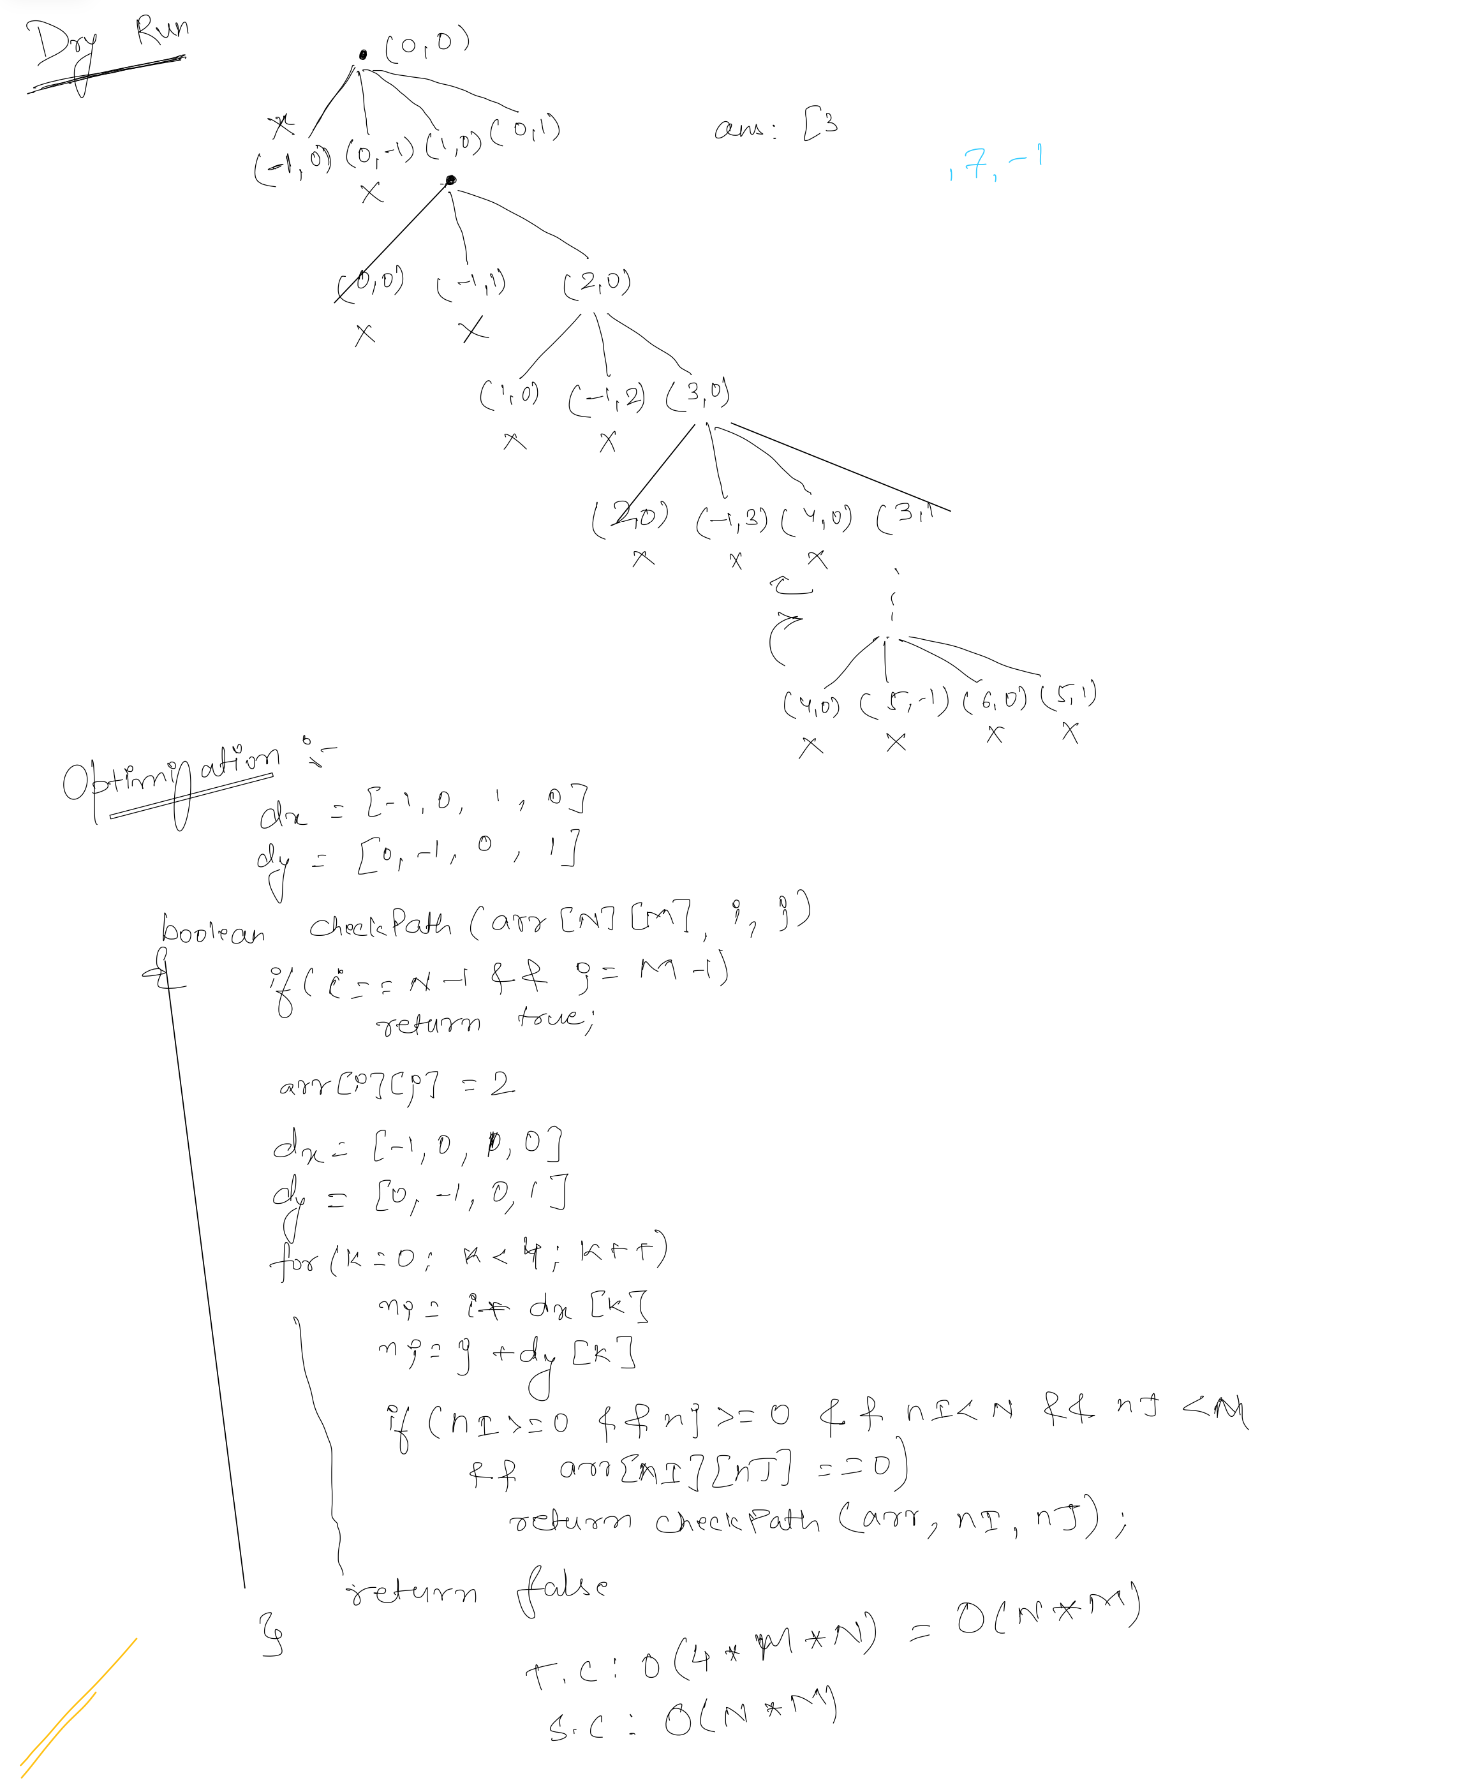 Dry Run
(0,0)
x
(-1,0) (0,-1) (1,0) (0,1)
x
ans: [3
,7,-1
(0,0) (-1,1) (2,0)
x x
(1,0) (-1,2) (3,0)
x x
(2,0) (-1,3) (4,0) (3,1
x x x
(4,0) (5,-1) (6,0) (5,1)
x x x x
Optimization :-
dx = [-1, 0, 1, 0]
dy = [0, -1, 0, 1]
boolean checkPath (arr [N] [M], i, j)
{
if (i == N-1 && j = M-1)
return true;
arr[i][j] = 2
dx = [-1, 0, 1, 0]
dy = [0, -1, 0, 1]
for (k=0; k<4; k++)
ni = i+ dx [k]
nj = j +dy [k]
if (nI>=0 && nj >=0 && nI<N && nJ <M
&& arr[nI][nJ] ==0)
return checkPath (arr, nI, nJ);
return false
}
T.C: O(4 * M * N) = O(N*M)
S.C : O(N*M)